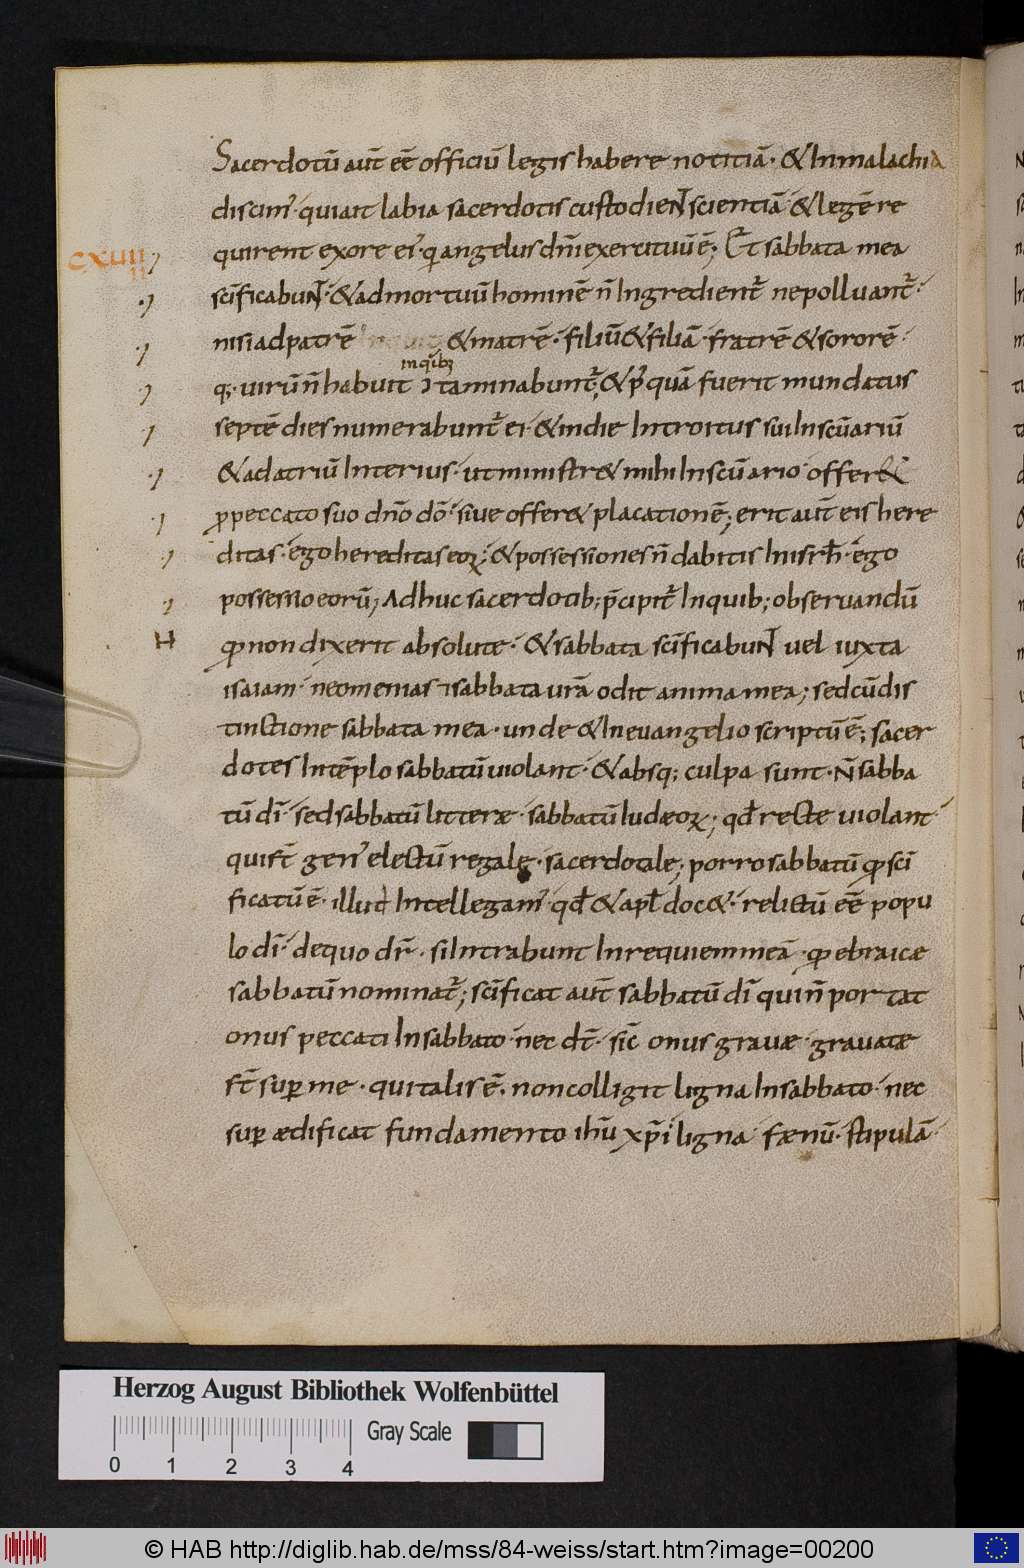 Sacerdotū aut̄ eē officiū legis habere notitiā · & In malachia
discim᾽ · quia it labia sacerdotis custodieNT scientiā · & legē re
quirent ex ore ei᾽ · qi angelus dn̄i exercituū ē ; Et sabbata mea
CXVIII
sc̄ificabuNT · & ad mortuū hominē n̄ Ingredient᷑ ne polluant᷑ ·
nisi ad patrē & matrē · filiū & filiā · fratrē & sororē ·
in quib;
q; · uirū n̄ habuit ⁊ taminabunt᷑ ; & p᾽ quā fuerit mundatus
septē dies numerabunt᷑ ei · & in die Introitus sui In sc̄uariū
& ad atriū Interius · ut ministr& mihi In sc̄uario · offer&
ꝓ peccato suo dn̄o dō · siue offer& placationē ; erit aut̄ eis here
ditas · ego hereditas eoꝝ ; & possessiones n̄ dabitis In isrh̄l · ego
possessio eorū ; Adhuc sacerdotib; p̄cipit᷑ In quib; obseruandū
H
ꝙ non dixerit absolute · & sabbata sc̄ificabuNT uel iuxta
isaiam · neomenias ⁊ sabbata urā odit anima mea ; sed cū dis
tinctione sabbata mea · unde & In euangelio scriptū ē ; sacer
dotes In tēplo sabbatū uiolant · & absq; culpa sunt · N̄ sabba
tū dī · sed sabbatū litteræ · sabbatū Iudæoꝝ ; qđ recte uiolant ·
qui st̄ gen᾽ electū regale · sacerdotale ; porro sabbatū ꝙ sci
ficatū ē · illud Intellegam᾽ · qđ & apl̄ doc& · relictū eē popu
lo dī · de quo dr̄ · si Intrabunt In requiem meā · ꝙ ebraicæ
sabbatū nominat᷑ ; sc̄ificat aut̄ sabbatū dī qui n̄ portat
onus peccati In sabbato · nec dt̄ · sic̄ onus graue · grauatæ
st̄ suꝑ me · qui talis ē · non colligit ligna In sabbato · nec
suꝑ ædificat fundamento ihū xp̄i ligna fænū · stipulā ·
Herzog August Bibliothek Wolfenbüttel
Gray Scale
0 1 2 3 4
© HAB http://diglib.hab.de/mss/84-weiss/start.htm?image=00200